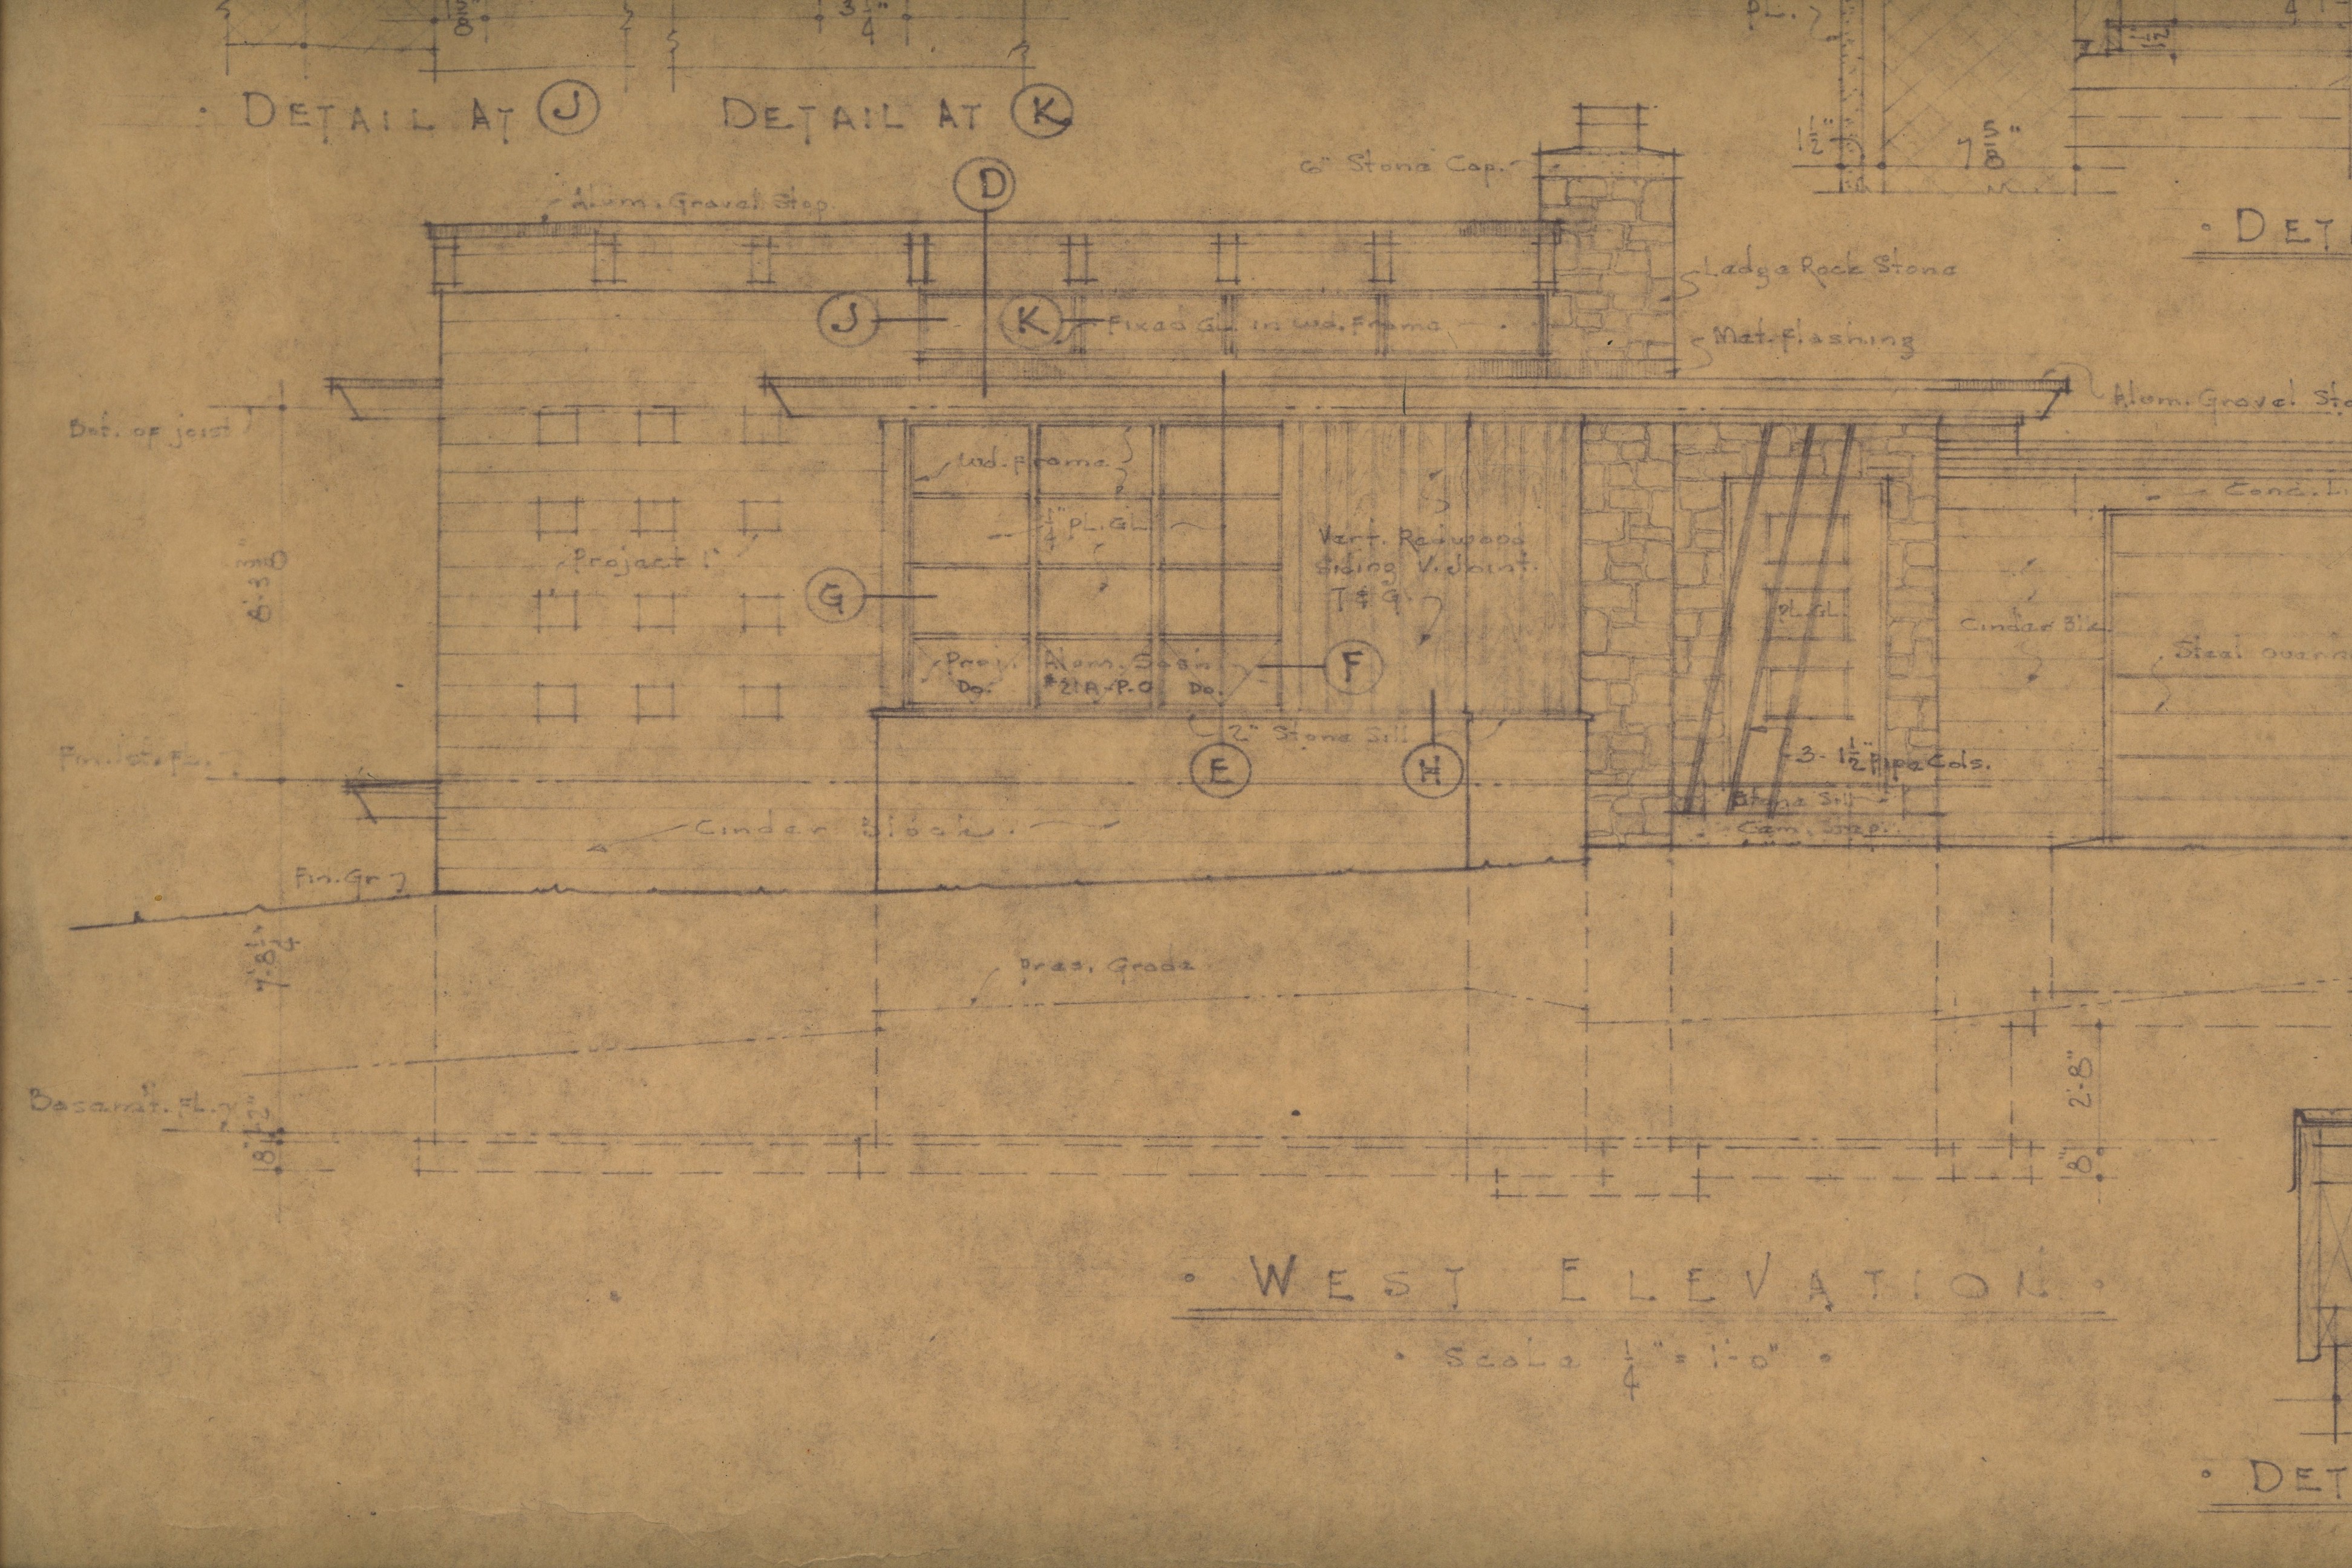 5/8"
3 1/4"
PL.
1 1/2
4
· DETAIL AT J
DETAIL AT K
1 1/2"
7 5/8"
6" Stone Cap.
D
Alum. Gravel Stop.
· DET
Ledge Rock Stone
J
K
Fixed GL. in Wd. Frame
Met. Flashing
Alum. Gravel Sto
Bot. of joist
Wd. Frame
Conc. Li
1/4" PL. GL.
Vert. Redwood
Siding V. Joint.
T & G.
Project 1"
8'-3"
G
PL. GL.
Cinder Blk.
Steel overh
Proj. Alum. Sash
F
Do. #21A-P.O. Do.
2" Stone Sill
Fin. 1st. FL.
E
H
3 - 1 1/2" Pipe Cols.
Stone Sill
Cinder Block.
Cem. Step.
Fin. Gr
7'-8 1/4"
Pres. Grade
2'-8"
Basem't. FL.
2"
8"
8"
· WEST ELEVATION ·
· Scale 1/4" = 1'-0" ·
· DET